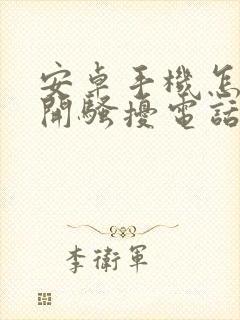 安卓手機怎
開騷擾電話
李衛軍